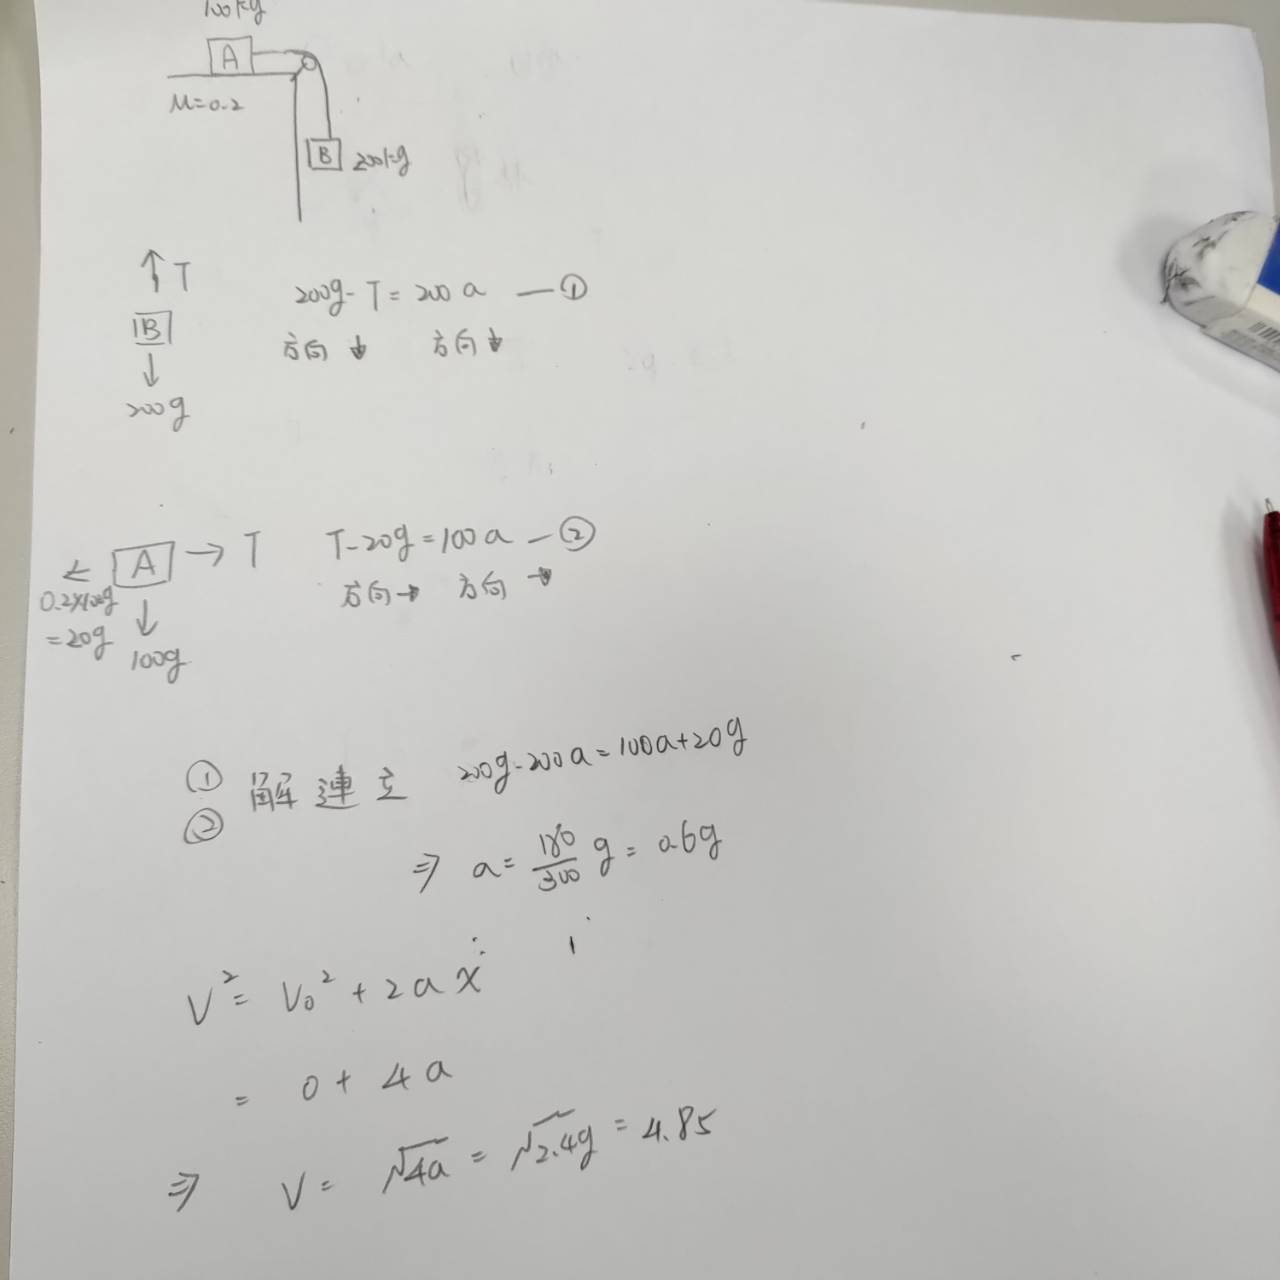 100kg
A
M=0.2
B 200kg
↑ T
B
↓
200g
200g - T = 200a —①
方向 ↓ 方向 ↓
← A → T
0.2×100g
=20g
↓
100g
T-20g=100a —②
方向→ 方向→
①
② 解連立 200g-200a=100a+20g
⇒ a= 180/300 g = 0.6g
V²= V₀² + 2ax
= 0 + 4a
⇒ V= √4a = √2.4g = 4.85